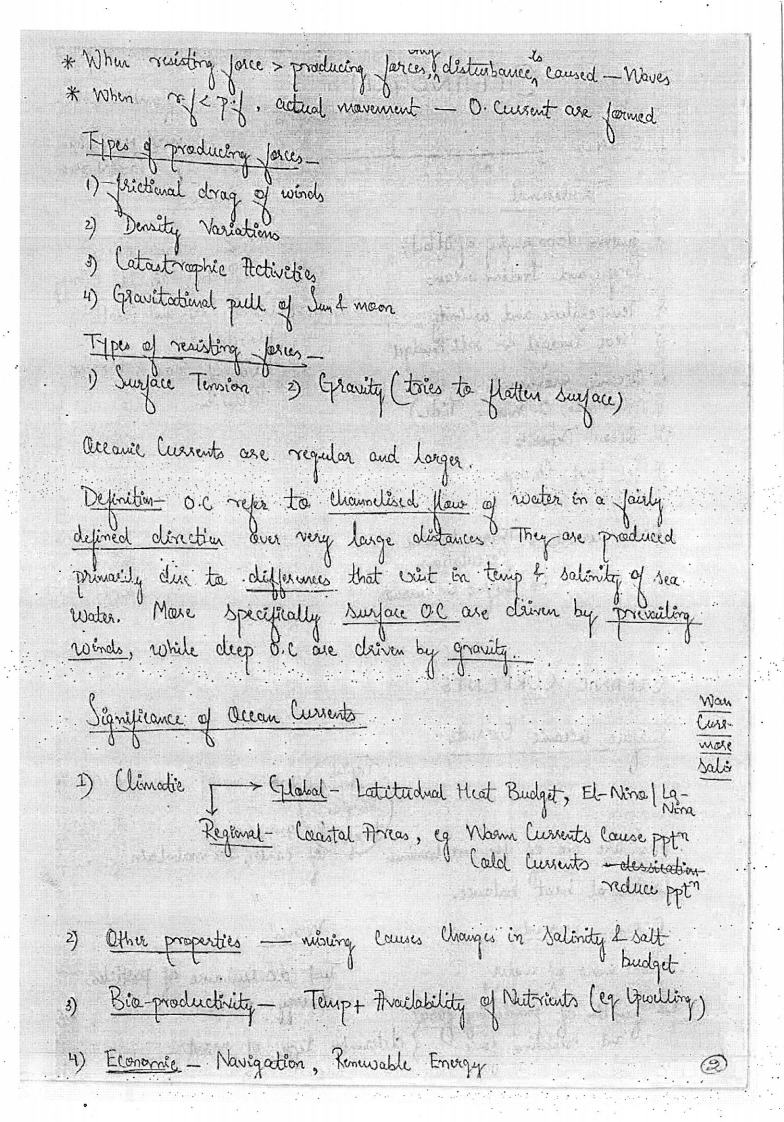 * When resisting force > producing forces, only disturbance is caused — Waves
* When r.f < p.f, actual movement — O. Current are formed
Types of producing forces –
1) frictional drag of winds
2) Density Variations
3) Catastrophic Activities
4) Gravitational pull of Sun & moon
Types of resisting forces –
1) Surface Tension 2) Gravity (tries to flatten surface)
Oceanic Currents are regular and larger.
Definition – O.C refer to channelised flow of water in a fairly
defined direction over very large distances. They are produced
primarily due to differences that exist in temp & salinity of sea
water. More specifically surface O.C are driven by prevailing
winds, while deep O.C are driven by gravity.
Significance of Ocean Currents
Wam
Curr-
more
Salis
1) Climatic → Global – Latitudinal Heat Budget, El-Nino | La-
Nina
Regional – Coastal Areas, eg Warm Currents cause pptn
Cold Currents dessication
reduce pptn
2) Other properties — mixing causes changes in salinity & salt
budget
3) Bio-productivity – Temp + Availability of Nutrients (eg Upwelling)
4) Economic – Navigation, Renewable Energy
2